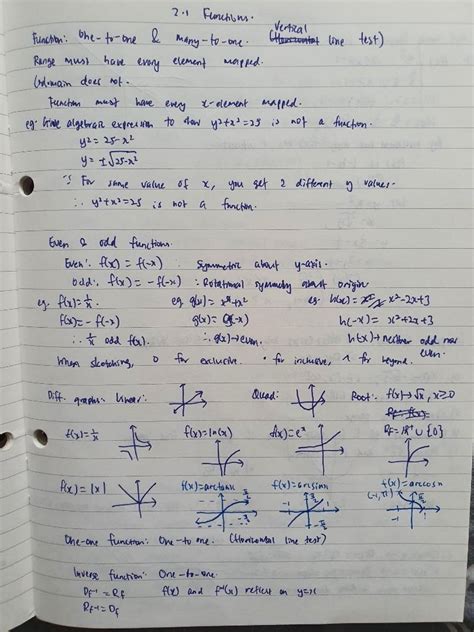 2.1 Functions.
Function: One-to-one & many-to-one. (vertical line test)
Range must have every element mapped.
Codomain does not.
Function must have every x-element mapped.
eg. algebraic expression to show y²+x²=25 is not a function.
y² = 25-x²
y = ±√25-x²
∵ For same value of x, you get 2 different y values.
∴ y²+x²=25 is not a function.
Even & odd functions.
Even: f(x) = f(-x) : Symmetric about y-axis.
Odd: f(x) = -f(-x) : Rotational symmetry about origin
eg. f(x)=1/x eg. g(x) = eg. h(x)= x²-2x+3
f(x)= -f(-x) g(x)= (-x) h(-x) = x²+2x+3
∴ 1/x odd f(x). ∴ g(x)→even. h(x)→neither odd nor even.
When sketching, O for exclusive. • for inclusive, ^ for beyond.
Diff. graphs: Linear: Quad: Root: f(x)→√x, x≥0
f(x)=1/x f(x)=ln(x) f(x)=eˣ Rf=ℝ⁺∪{0}
f(x)=|x| f(x)=arctanx f(x)=arcsinx f(x)=arccosx
π/2 π/2 (-1,π) π/2
-1 1 -1 1
One-one function: One-to one. (Horizontal line test)
Inverse function: One-to-one.
Df⁻¹ = Rf f(x) and f⁻¹(x) reflect on y=x
Rf⁻¹ = Df